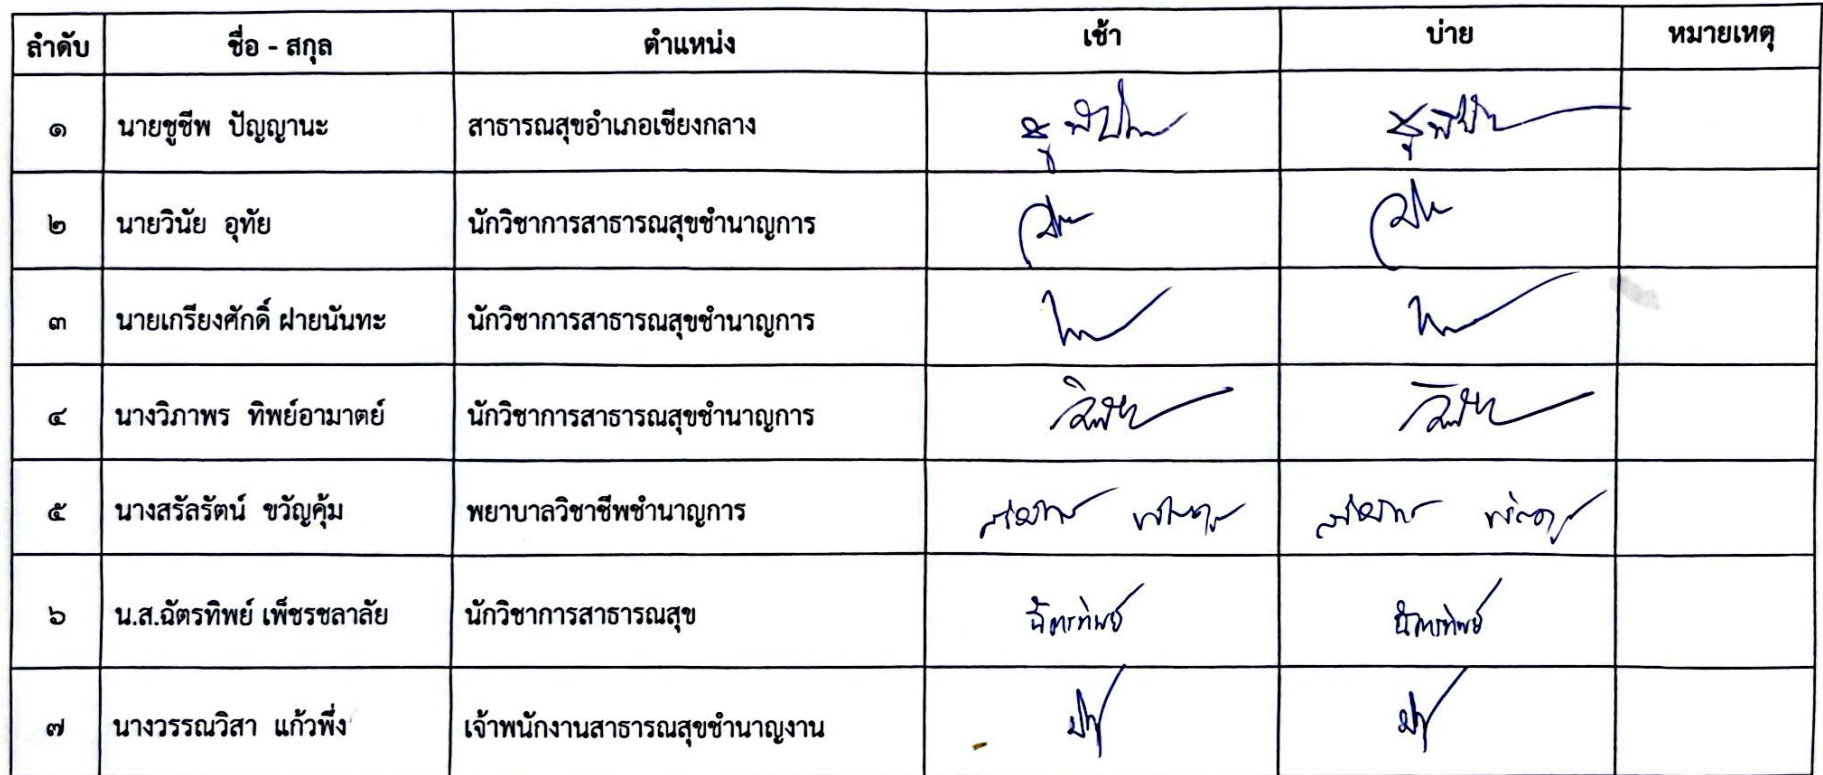 ลำดับ ชื่อ - สกุล ตำแหน่ง เช้า บ่าย หมายเหตุ
๑ นายชูชีพ ปัญญานะ สาธารณสุขอำเภอเชียงกลาง
๒ นายวินัย อุทัย นักวิชาการสาธารณสุขชำนาญการ
๓ นายเกรียงศักดิ์ ฝายนันทะ นักวิชาการสาธารณสุขชำนาญการ
๔ นางวิภาพร ทิพย์อามาตย์ นักวิชาการสาธารณสุขชำนาญการ
๕ นางสรัลรัตน์ ขวัญคุ้ม พยาบาลวิชาชีพชำนาญการ
๖ น.ส.ฉัตรทิพย์ เพ็ชรชลาลัย นักวิชาการสาธารณสุข ฉัตรทิพย์ ฉัตรทิพย์
๗ นางวรรณวิสา แก้วพึ่ง เจ้าพนักงานสาธารณสุขชำนาญงาน